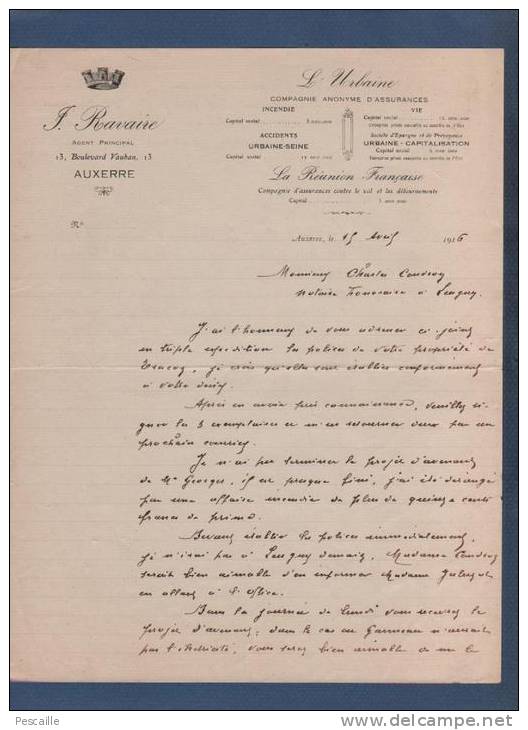 J. Ravaire
AGENT PRINCIPAL
13, Boulevard Vauban, 13
AUXERRE
L'Urbaine
COMPAGNIE ANONYME D'ASSURANCES
INCENDIE
Capital social
VIE
Capital social
ACCIDENTS
URBAINE-SEINE
Capital social
Société d'Epargne et de Prévoyance
URBAINE - CAPITALISATION
Capital social
La Réunion Française
Compagnie d'assurances contre le vol et les détournements
Capital
N°
Auxerre, le 15 Avril 1916
Monsieur Charles
Notaire honoraire à
J'ai l'honneur de vous adresser ci-joint
en triple expédition les polices de votre propriété de
je crois qu'elles sont établies conformément
à votre désir.
Après en avoir pris connaissance, veuillez si-
gner les 3 exemplaires et m'en retourner deux par un
prochain courrier.
Je n'ai pu terminer le projet d'avenant
de Mr Georges, il est presque fini, j'ai été dérangé
par une affaire incendie de plus de quinze cents
francs de prime.
Devant établir les polices immédiatement,
je n'irai pas à demain, Madame
serait bien aimable d'en informer Madame
en allant à l'office.
Dans la journée de lundi vous recevrez le
projet d'avenant; dans le cas où n'aurait
pas l'électricité, vous serez bien aimable de me le
Pescaille
www.delcampe.net